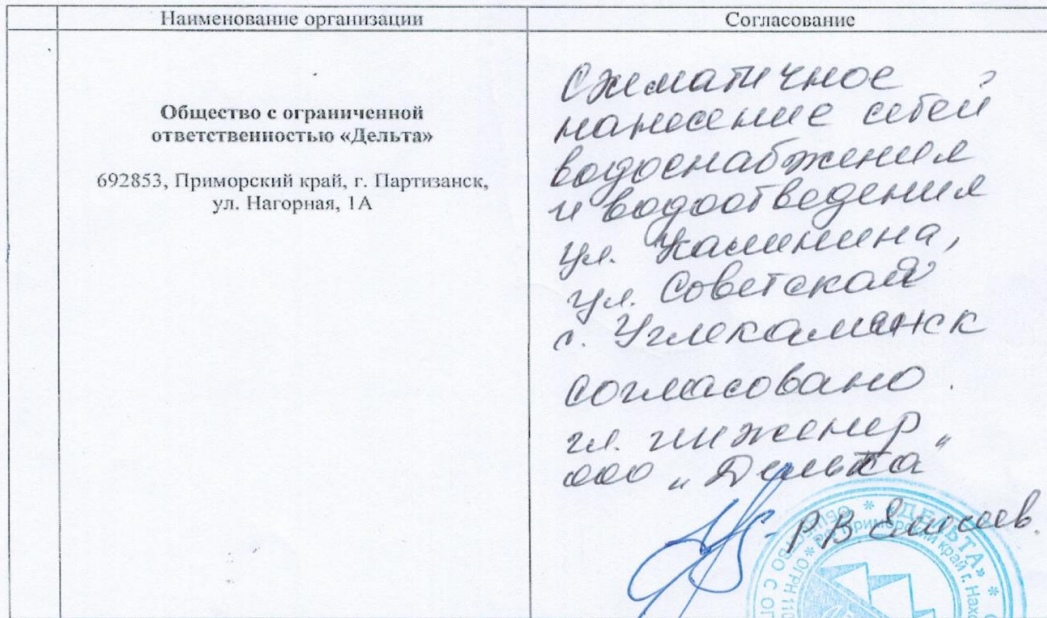 Наименование организации
Согласование
Общество с ограниченной
ответственностью «Дельта»
692853, Приморский край, г. Партизанск,
ул. Нагорная, 1А
Схематичное
нанесение сетей
водоснабжения
и водоотведения
ул. Калинина,
ул. Советской
с. Углекаменск
согласовано.
гл. инженер
ООО „Дельта"
Р.В
* «ДЕЛЬТА» *
Приморский край г. Нахо
* ОГРН 110
С ОГ